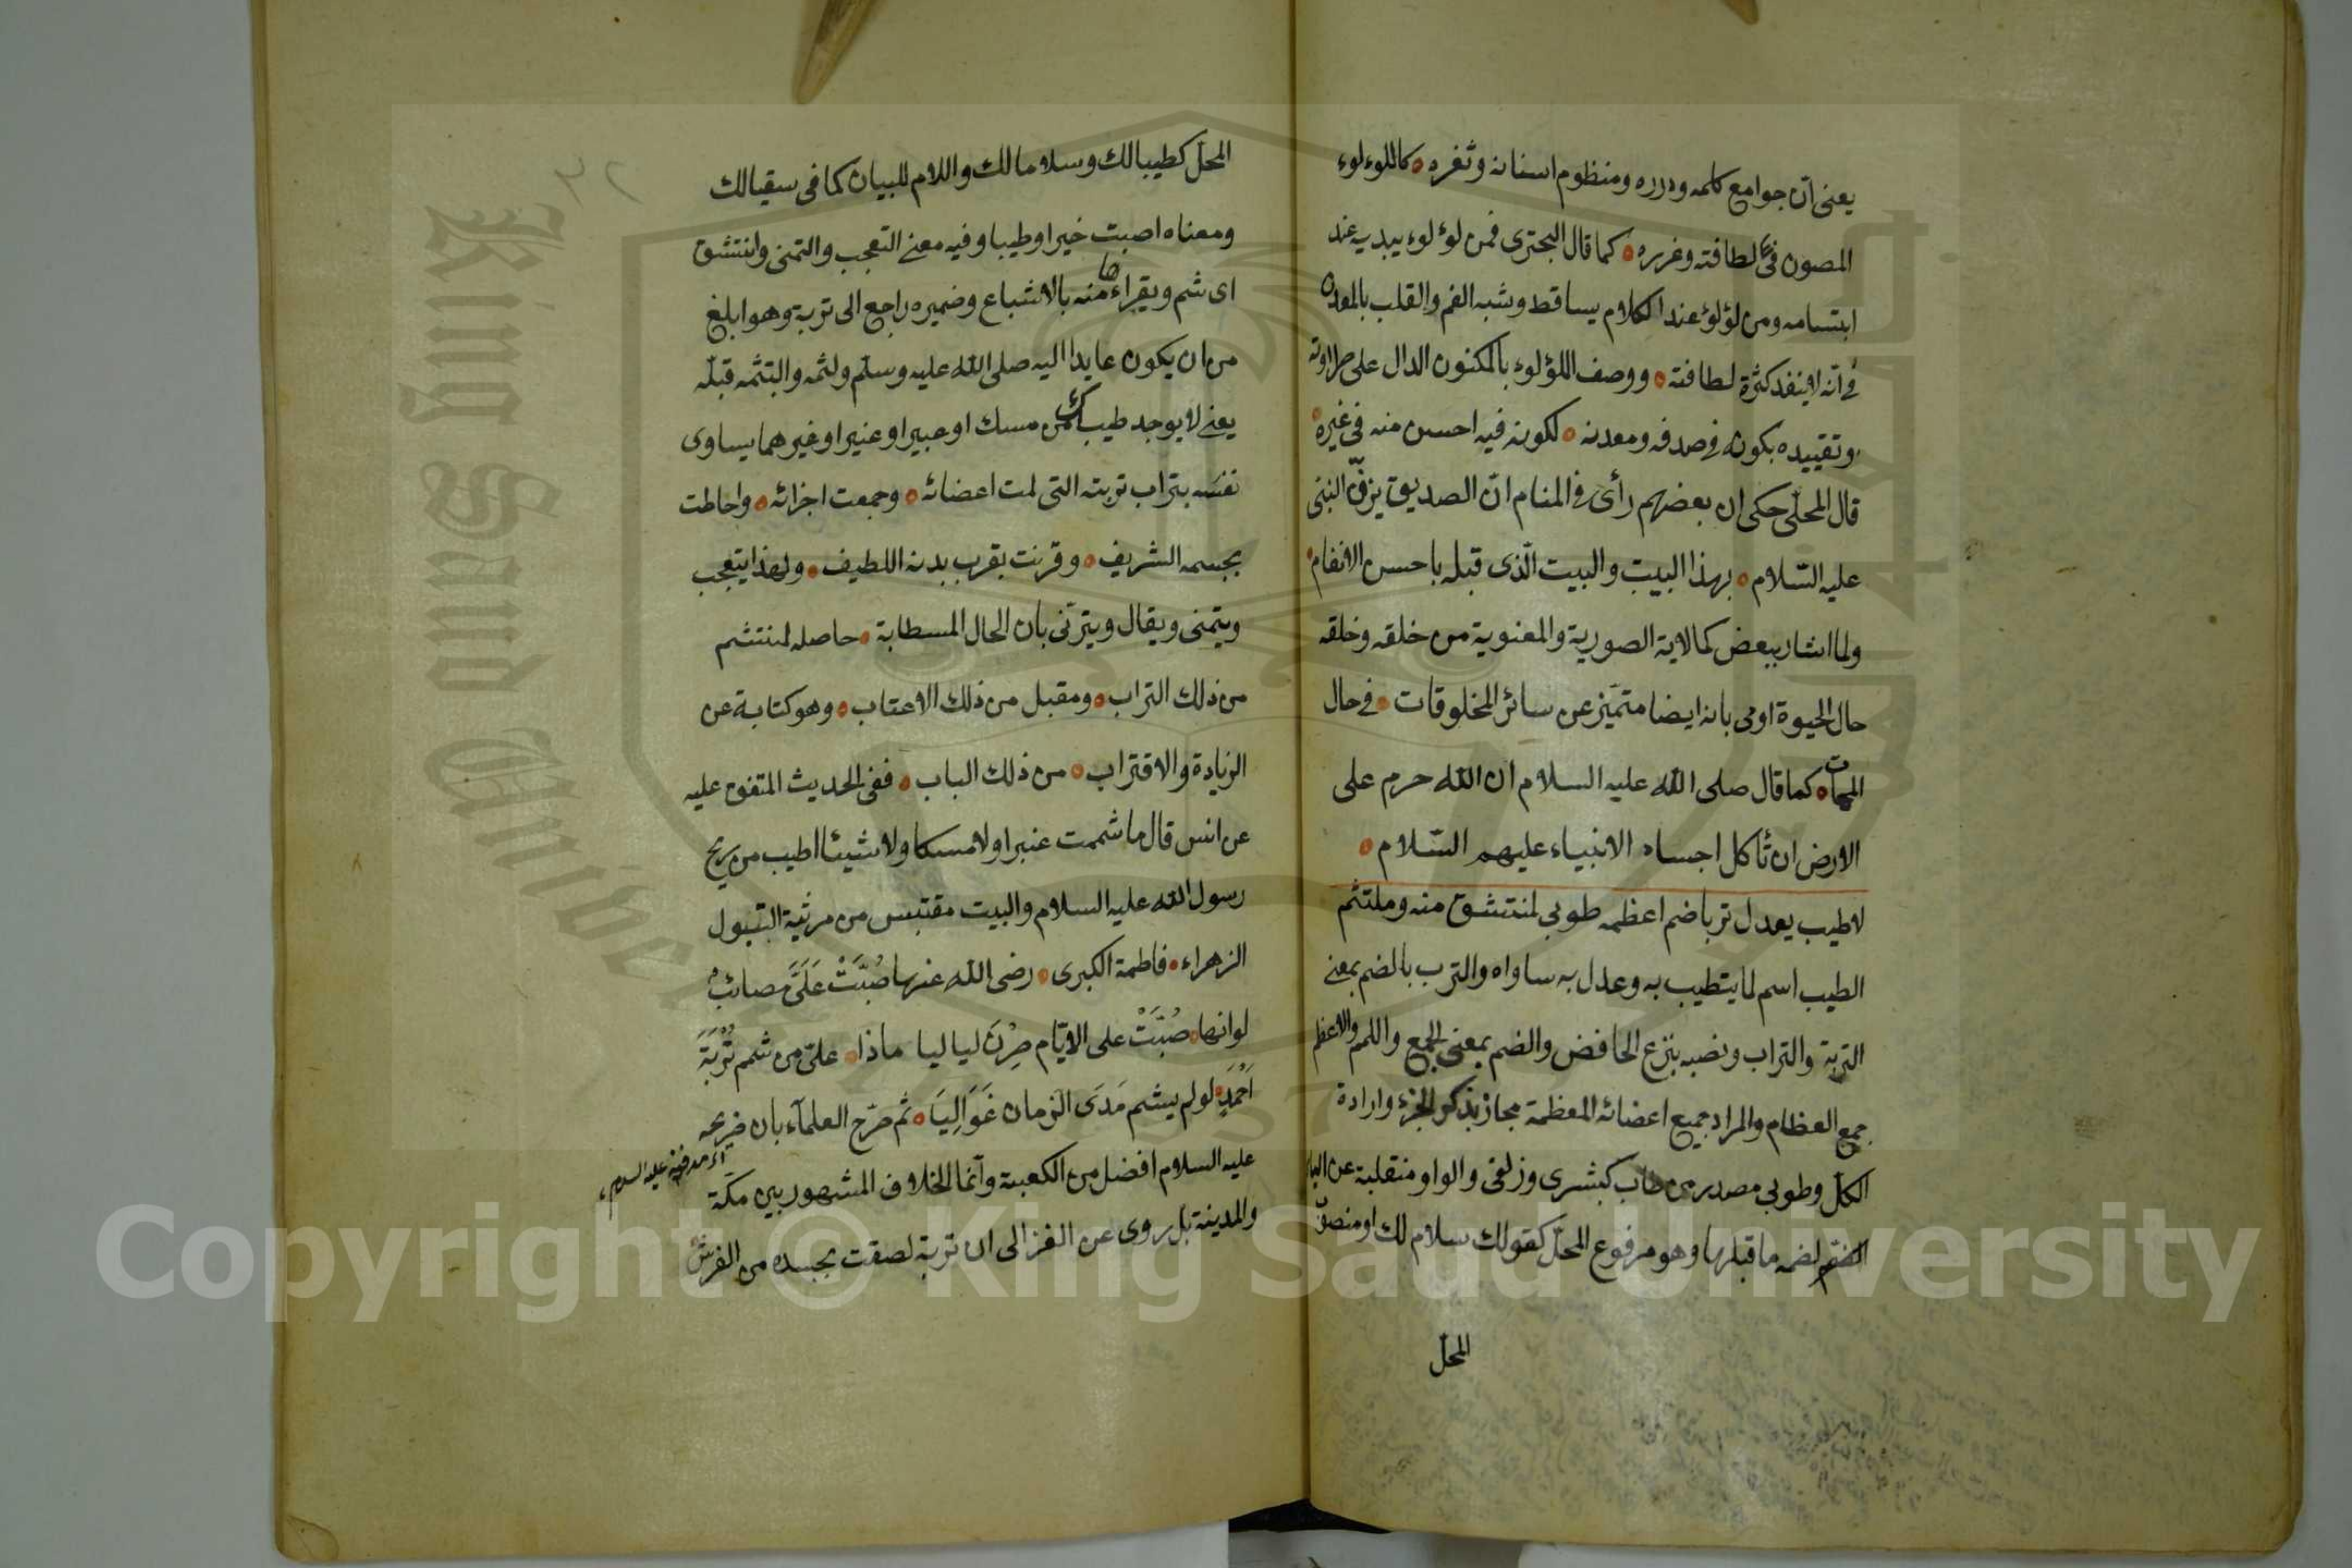 يعنى ان جوامع كلمه ودرره ومنظوم اسنانه وثغره كاللوءلوء
المصون فى لطافته وغرره كما قال البحترى فمن لوٴلوء يبديه عند
ابتسامه ومن لؤلؤ عند الكلام يساقط وشبه الفم والقلب بالمعدن
فى انه لا ينفد كثرة لطافته ووصف اللؤلوء بالمكنون الدال على طراوته
وتقييده بكونه فى صدفه ومعدنه لكونه فيه احسن منه فى غيره
قال المحلّى حكى ان بعضهم رأى فى المنام انّ الصديق يزفّ النبى
عليه السّلام بهذا البيت والبيت الّذى قبله باحسن الانغام
ولما اشار ببعض كمالاته الصورية والمعنوية من خلقه وخلقه
حال الحيوة اومى بانه ايضا متميّز عن سائر المخلوقات فى حال
الممات كما قال صلى الله عليه السلام ان الله حرم على
الارض ان تأكل اجساد الانبياء عليهم السّلام
لا طيب يعدل تربا ضم اعظمه طوبى لمنتشق منه وملتثم
الطيب اسم لما يتطيب به وعدل به ساواه والترب بالضم بمعنى
التربة والتراب ونصبه بنزع الخافض والضم بمعنى الجمع واللم والاعظم
جمع العظام والمراد جميع اعضائه المعظمة مجاز بذكر الجزء وارادة
الكلّ وطوبى مصدر من طاب كبشرى وزلفى والواو منقلبة عن الياء
لضمه ما قبلها وهو مرفوع المحلّ كقولك سلام لك او منصوب
المحل
المحلّ كطيبا لك وسلاما لك واللام للبيان كما فى سقيا لك
ومعناه اصبت خيرا وطيبا وفيه معنى التعجب والتمنى وانتشق
اى شم ويقراء ها منه بالاشباع وضميره راجع الى تربة وهو ابلغ
من ان يكون عايدا اليه صلى الله عليه وسلّم ولثمه والتثمه قبلّه
يعنى لا يوجد طيب من مسك او عبير او عنبر او غيرهما يساوى
نفسه بتراب تربته التى لمت اعضائه وجمعت اجزائه واحاطت
بجسمه الشريف وقرنت بقرب بدنه اللطيف ولهذا يتعجب
ويتمنى ويقال ويترنى بان الحال المسطابة حاصله لمنتشم
من ذلك التراب ومقبل من ذلك الاعتاب وهو كناية عن
الزيادة والاقتراب من ذلك الباب ففى الحديث المتفق عليه
عن انس قال ما شممت عنبرا ولا مسكا ولا شيئا اطيب من ريح
رسول الله عليه السلام والبيت مقتبس من مرثية البتول
الزهراء فاطمة الكبرى رضى الله عنها صُبَّتْ عَلَىَّ مصائبٌ
لو انها صُبَّتْ على الايّام صِرْنَ لياليا ماذا على من شم تُرْبَةَ
اَحْمَدٍ لو لم يشم مَدَى الزمان غَوَالِيَا ثم صَرّح العلمآء بان ضريحه
عليه السلام افضل من الكعبة وانّما الخلاف المشهور بين مكّة
اى مدفنه عليه السلام
والمدينة بل روى عن الغزالى ان تربة لصقت بجسده من الفرش
King Saud University
Copyright © King Saud University